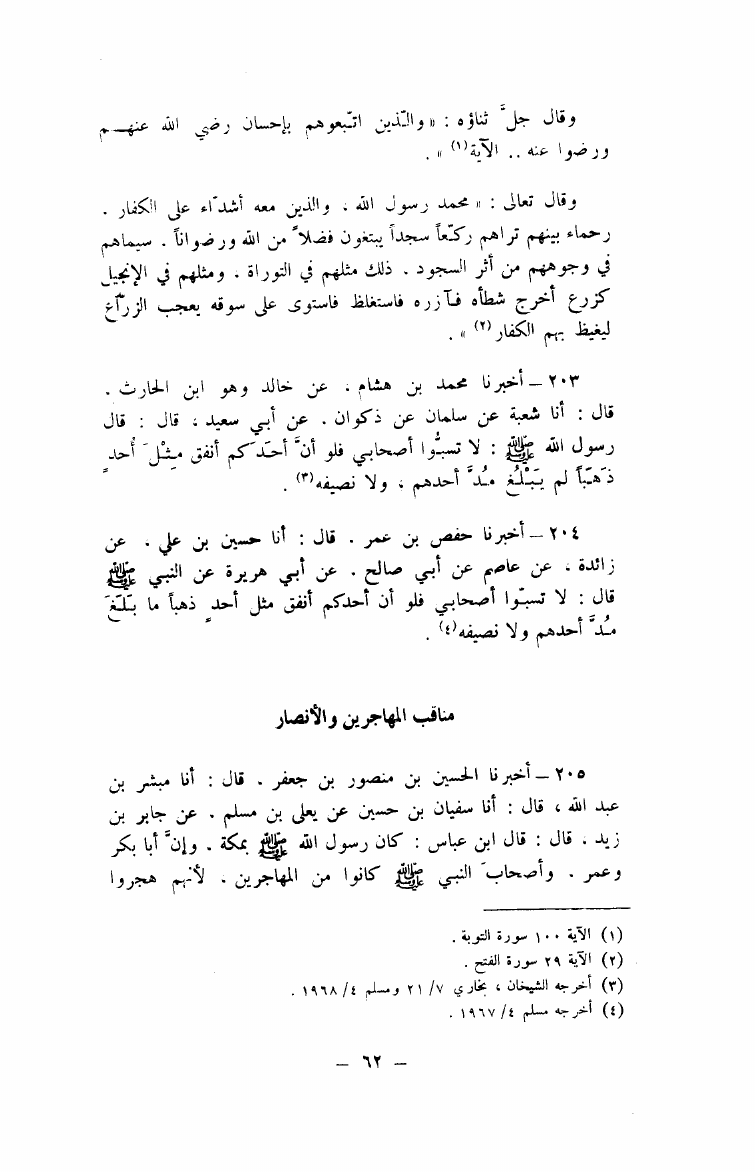 وقال جلَّ ثناؤه : « والـّذين اتـّبعوهم بإحسان رضي الله عنهــم
ورضوا عنه .. الآية(١) » .
وقال تعالى : « محمد رسول الله ، والذين معه أشدّاء على الكفار .
رحماء بينهم تراهم ركـّعاً سجداً يبتغون فضلاً من الله ورضواناً . سيماهم
في وجوههم من أثر السجود . ذلك مثلهم في التوراة . ومثلهم في الإنجيل
كزرع أخرج شطأه فـآزره فاستغلظ فاستوى على سوقه يعجب الزرّاع
ليغيظ بهم الكفار(٢) » .
٢٠٣ – أخبرنا محمد بن هشام ، عن خالد وهو ابن الحارث .
قال : أنا شعبة عن سلمان عن ذكوان . عن أبي سعيد ، قال : قال
رسول الله ﷺ : لا تسبُّوا أصحابي فلو أنَّ أحدَكم أنفق مِثْلَ أُحدٍ
ذَهَباً لم يَبْلُغ مُدَّ أحدهم ، ولا نصيفه(٣) .
٢٠٤ – أخبرنا حفص بن عمر . قال : أنا حسين بن علي . عن
زائدة ، عن عاصم عن أبي صالح . عن أبي هريرة عن النبي ﷺ
قال : لا تسبّوا أصحابي فلو أن أحدكم أنفق مثل أحدٍ ذهباً ما بَلَغَ
مُدَّ أحدهم ولا نصيفه(٤) .
مناقب المهاجرين والأنصار
٢٠٥ – أخبرنا الحسين بن منصور بن جعفر . قال : أنا مبشر بن
عبد الله ، قال : أنا سفيان بن حسين عن يعلى بن مسلم . عن جابر بن
زيد . قال : قال ابن عباس : كان رسول الله ﷺ بمكة . وإنَّ أبا بكر
وعمر . وأصحابَ النبي ﷺ كانوا من المهاجرين . لأنهم هجروا
(١) الآية ١٠٠ سورة التوبة .
(٢) الآية ٢٩ سورة الفتح .
(٣) أخرجه الشيخان ، بخاري ٧/ ٢١ ومسلم ٤/ ١٩٦٨ .
(٤) أخرجه مسلم ٤/ ١٩٦٧ .
– ٦٢ –